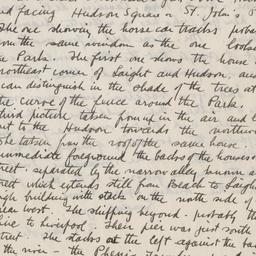 and facing Hudson Square or St. John's P
The one showing the horse car tracks proba
from the same window as the one looks
the Park. The first one shows the house
northeast corner of Laight and Hudson, and
can distinguish in the shade of the trees at
the curve of the fence around the Park.
third picture taken from up in the air and l
out to the Hudson towards the northwe
the taken from the roof of the same house
immediate foreground the backs of the houses o
reet, separated by the narrow alley known a
reet which extends still from Beach to Laigh
gh building with stack on the north side of
near west. The shipping beyond - probably th
line to Liverpool. Their pier was just south
treet. The stacks at the left against the ba
the river - the Phenix